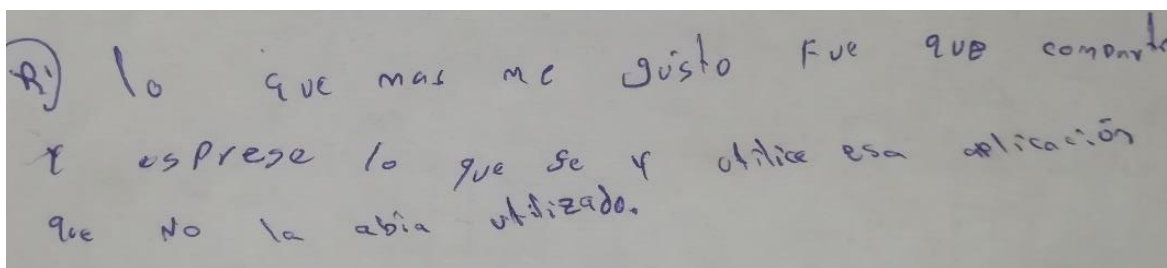 R) lo que mas me gusto Fue que comparte
y esprese lo que se y utilice esa aplicación
que No la abia utilizado.